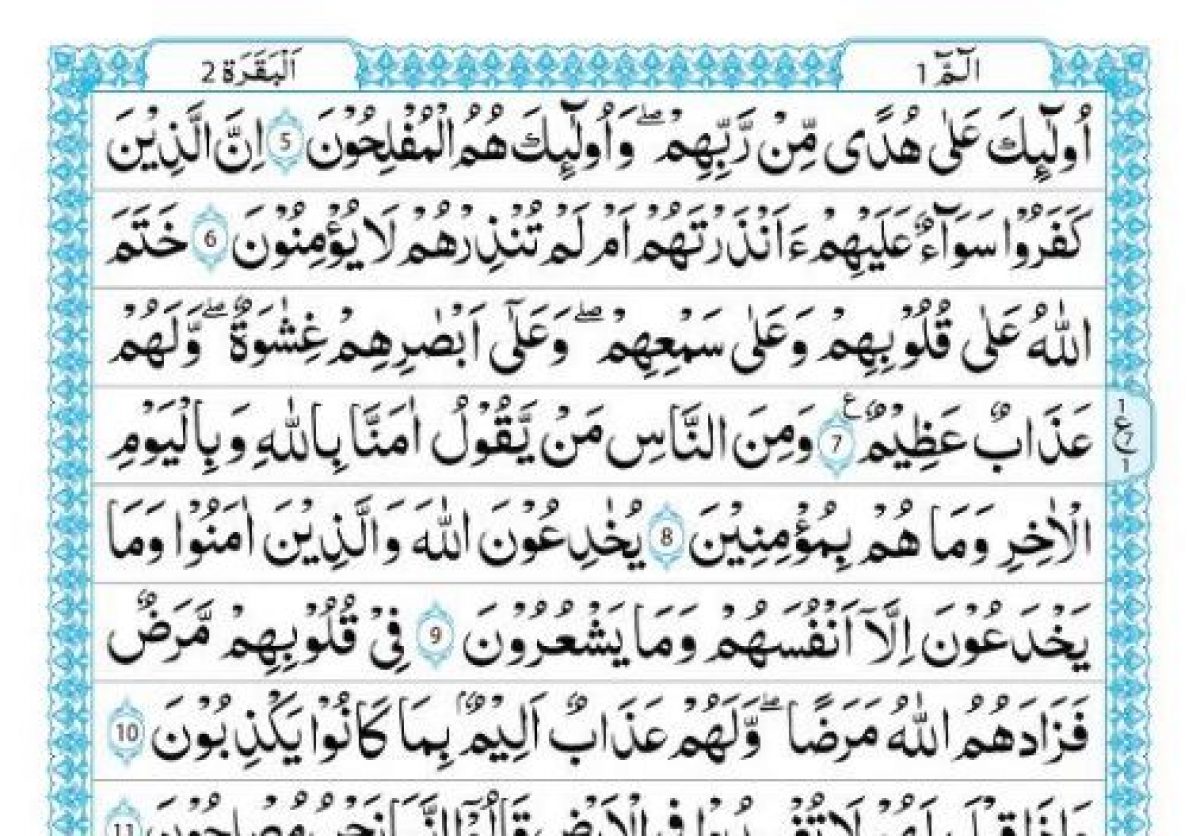 الٓمّٓ 1
اَلْبَقَرَة 2
اُولٰٓئِكَ عَلٰى هُدًى مِّنْ رَّبِّهِمْ ۖ وَاُولٰٓئِكَ هُمُ الْمُفْلِحُوْنَ 5 اِنَّ الَّذِيْنَ
كَفَرُوْا سَوَآءٌ عَلَيْهِمْ ءَاَنْذَرْتَهُمْ اَمْ لَمْ تُنْذِرْهُمْ لَا يُؤْمِنُوْنَ 6 خَتَمَ
اللّٰهُ عَلٰى قُلُوْبِهِمْ وَعَلٰى سَمْعِهِمْ ۖ وَعَلٰٓى اَبْصٰرِهِمْ غِشٰوَةٌ ۖ وَّلَهُمْ
عَذَابٌ عَظِيْمٌ 7 ع وَمِنَ النَّاسِ مَنْ يَّقُوْلُ اٰمَنَّا بِاللّٰهِ وَبِالْيَوْمِ
1
ع
7
1
الْاٰخِرِ وَمَا هُمْ بِمُؤْمِنِيْنَ 8 يُخٰدِعُوْنَ اللّٰهَ وَالَّذِيْنَ اٰمَنُوْا وَمَا
يَخْدَعُوْنَ اِلَّآ اَنْفُسَهُمْ وَمَا يَشْعُرُوْنَ 9 فِيْ قُلُوْبِهِمْ مَّرَضٌ
فَزَادَهُمُ اللّٰهُ مَرَضًا ۖ وَّلَهُمْ عَذَابٌ اَلِيْمٌ بِمَا كَانُوْا يَكْذِبُوْنَ 10
وَاِذَا قِيْلَ لَهُمْ لَا تُفْسِدُوْا فِى الْاَرْضِ قَالُوْٓا اِنَّمَا نَحْنُ مُصْلِحُوْنَ 11